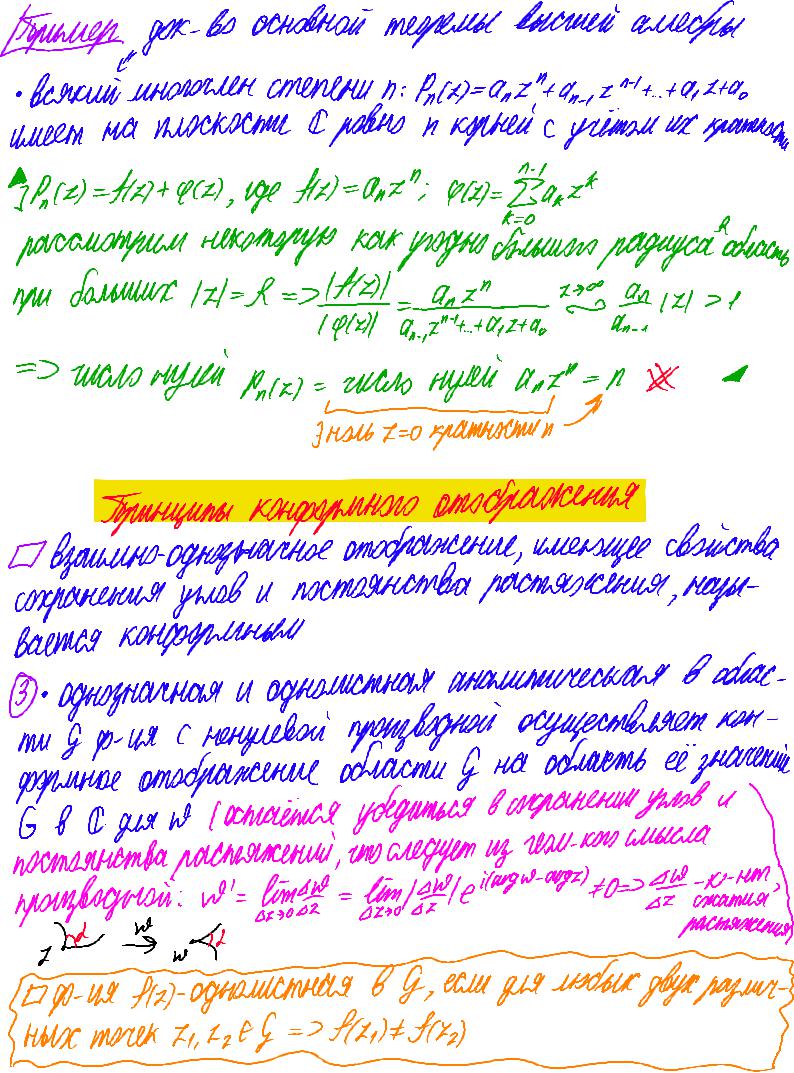 Пример док-во основной теоремы высшей алгебры
• всякий многочлен степени n: Pₙ(z)=aₙzⁿ+aₙ₋₁zⁿ⁻¹+...+a₁z+a₀
имеет на плоскости ℂ равно n корней с учётом их кратности
▲ ] Pₙ(z)=f(z)+φ(z), где f(z)=aₙzⁿ; φ(z)=∑_{k=0}^{n-1} aₖzᵏ
рассмотрим некоторую как угодно большого радиуса R область
при больших |z|=R => |f(z)|/|φ(z)| = aₙzⁿ/(aₙ₋₁zⁿ⁻¹+...+a₁z+a₀) ~ (z→∞) aₙ/aₙ₋₁ |z| > 1
=> число нулей Pₙ(z) = число нулей aₙzⁿ = n
∃ ноль z=0 кратности n
Принципы конформного отображения
□ взаимно-однозначное отображение, имеющее свойства
сохранения углов и постоянства растяжения, назы-
вается конформным
③ • однозначная и однолистная аналитическая в облас-
ти G ф-ция с ненулевой производной осуществляет кон-
формное отображение области G на область её значений
G в ℂ для w (остаётся убедиться в сохранении углов и
постоянства растяжений, что следует из геом-кого смысла
производной: w' = lim_{Δz→0} Δw/Δz = lim_{Δz→0} |Δw/Δz| e^{i(arg w - arg z)} ≠0 => Δw/Δz - к-нт
сжатия,
растяжения)
z α w→ w α
□ ф-ция f(z)-однолистная в G, если для любых двух различ-
ных точек z₁, z₂ ∈ G => f(z₁)≠f(z₂)